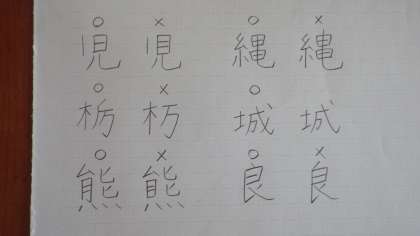 ○ × ○ ×
児 児 縄 縄
○ × ○
栃 栃 城 城
○ × ○ ×
熊 熊 良 良